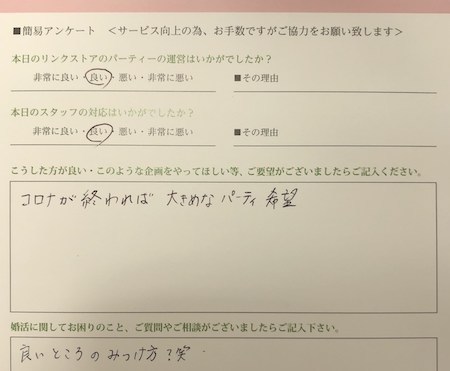 ■簡易アンケート ＜サービス向上の為、お手数ですがご協力をお願い致します＞
本日のリンクストアのパーティーの運営はいかがでしたか？
非常に良い・良い・悪い・非常に悪い ■その理由
本日のスタッフの対応はいかがでしたか？
非常に良い・良い・悪い・非常に悪い ■その理由
こうした方が良い・このような企画をやってほしい等、ご要望がございましたらご記入ください。
コロナが終われば 大きめな パーティ 希望
婚活に関してお困りのこと、ご質問やご相談がございましたらご記入下さい。
良いところのみつけ方？笑